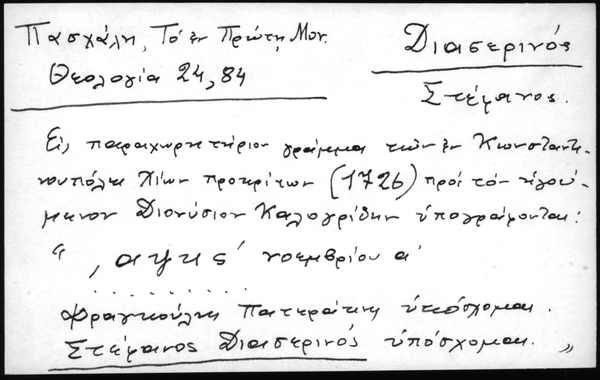 Πασχάλη, Τό ἐν Πρώτῃ Μον.
Θεολογία 24, 84
Διασερινός
Στέφανος.
Εἰς παραχωρητήριον γράμμα τῶν ἐν Κωνσταντι-
νουπόλει Χίων προκρίτων (1726) πρός τόν ἡγού-
μενον Διονύσιον Καλογρίδην ὑπογράφονται:
" ,αψκς′ νοεμβρίου α′
. . . . . . . . . .
Φραγκούλης Πατεράκης ὑπόσχομαι.
Στέφανος Διασερινός ὑπόσχομαι. "